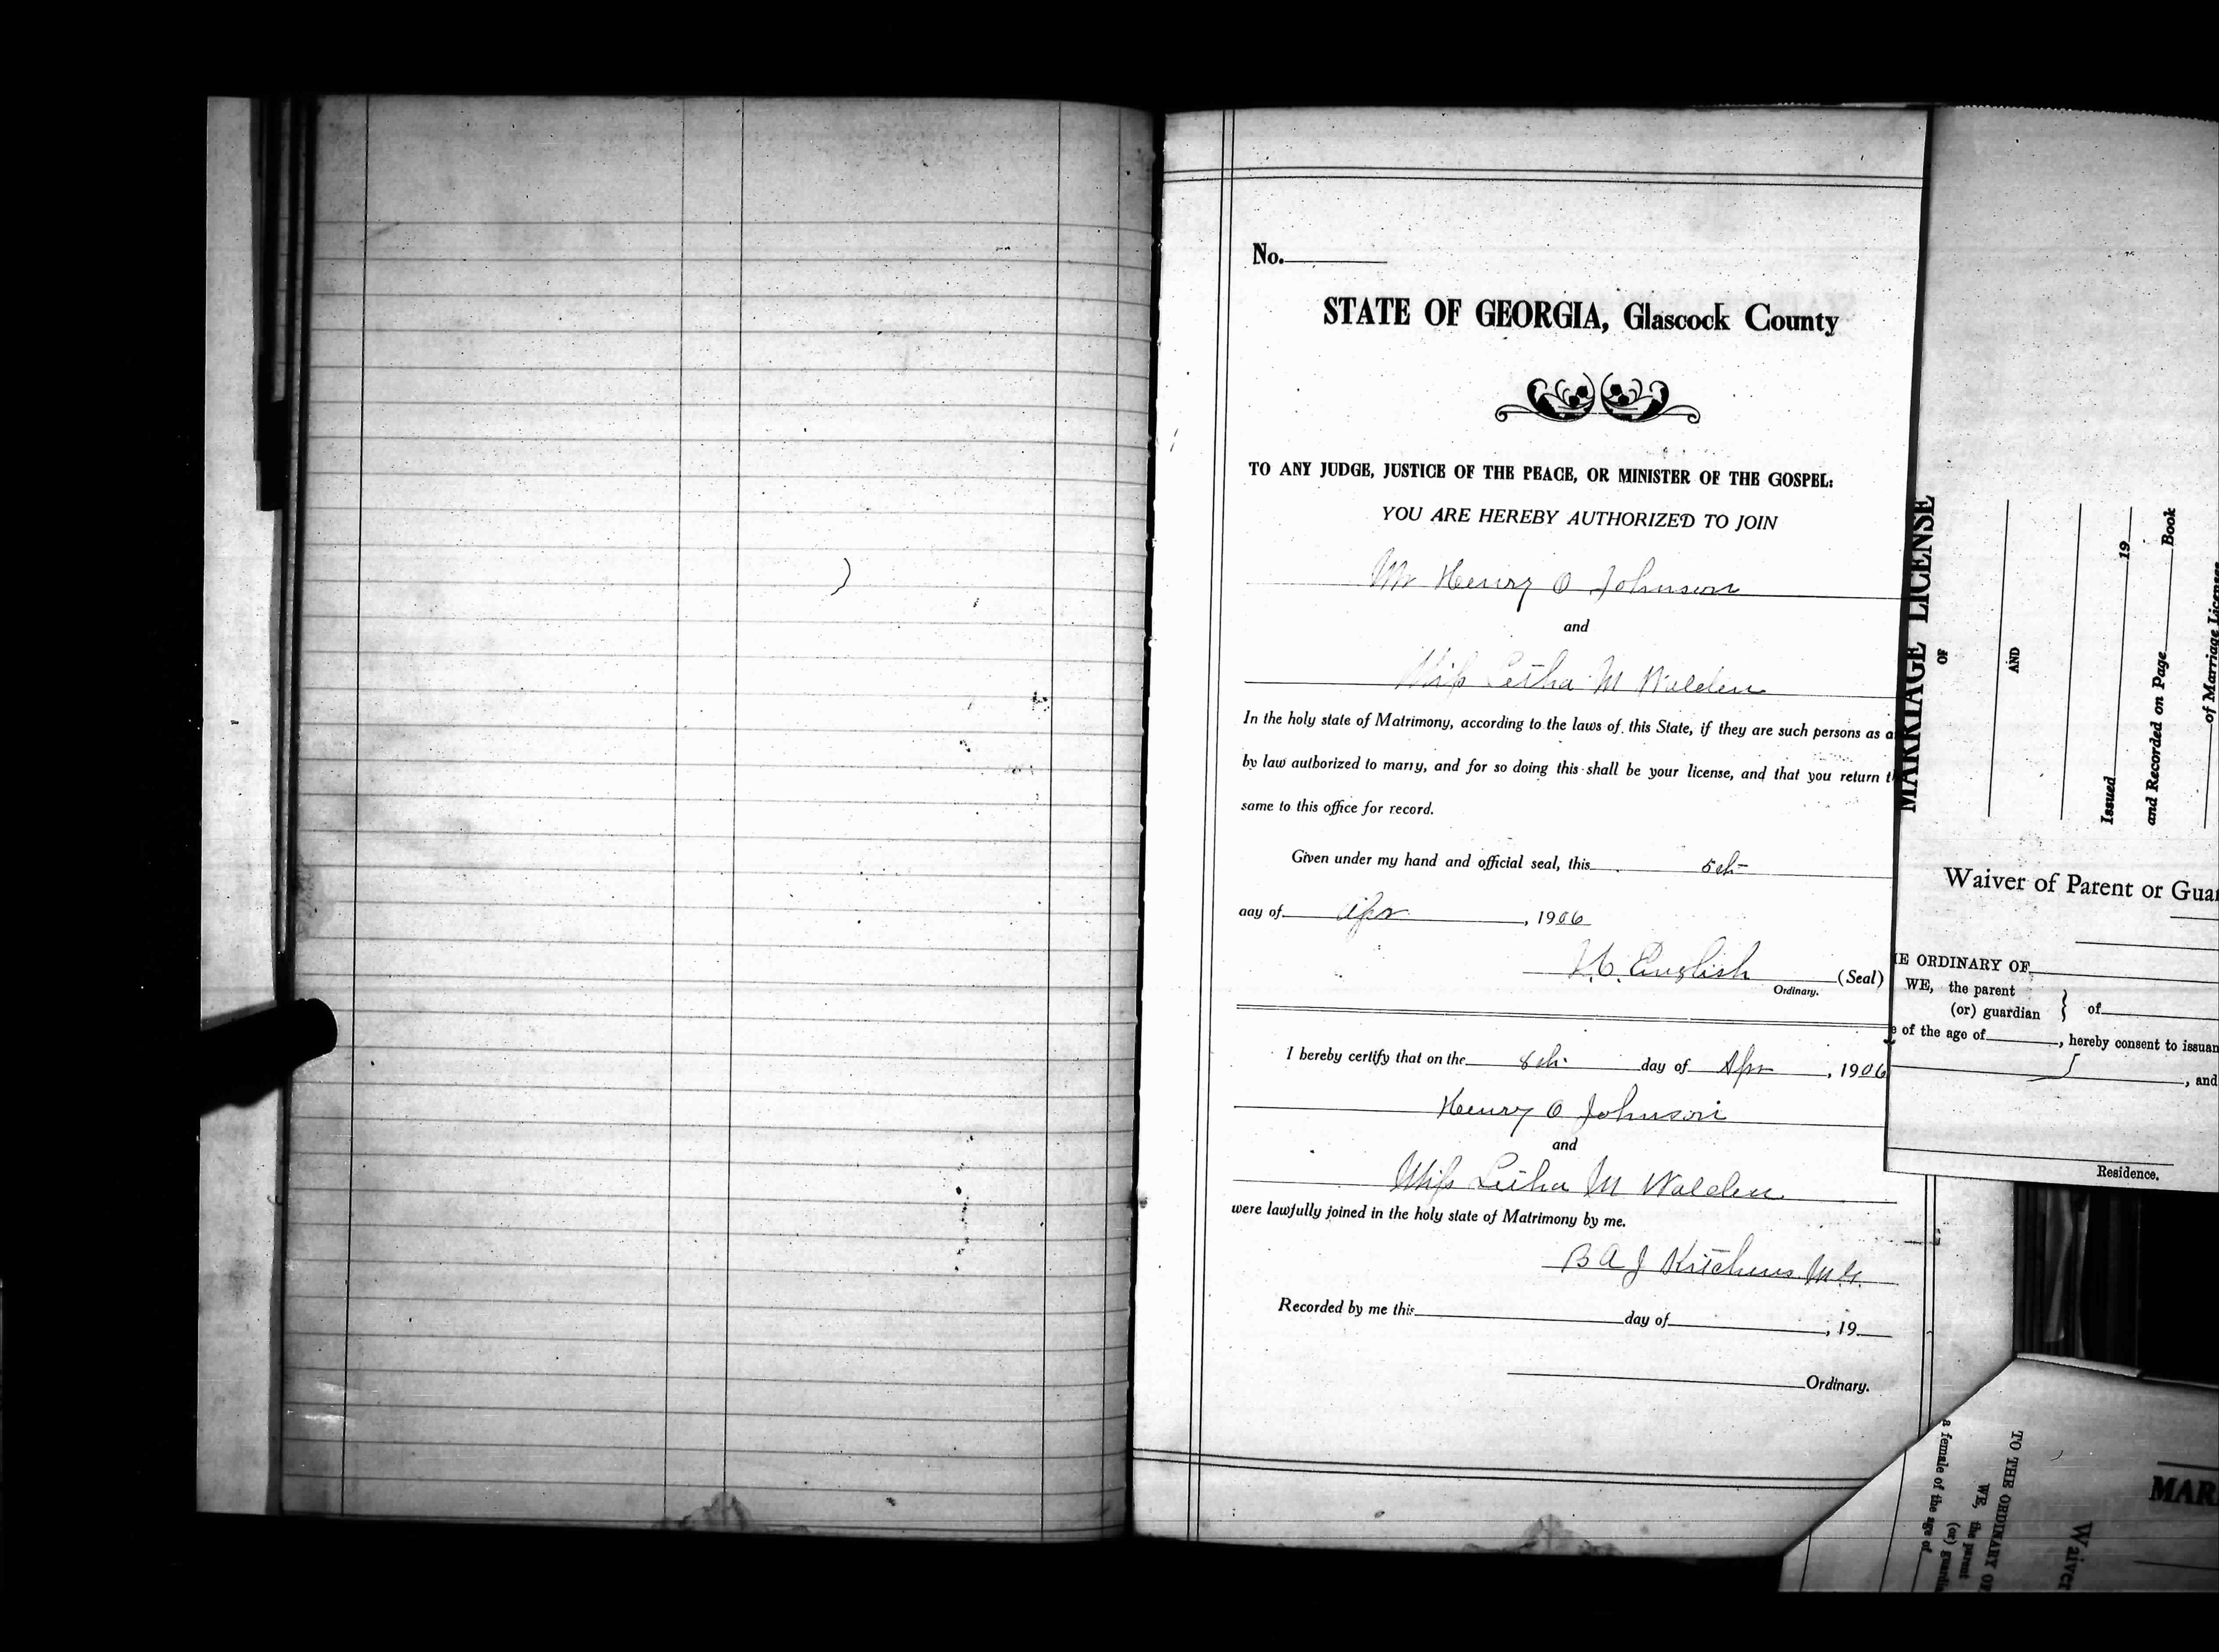 No.
STATE OF GEORGIA, Glascock County
TO ANY JUDGE, JUSTICE OF THE PEACE, OR MINISTER OF THE GOSPEL:
YOU ARE HEREBY AUTHORIZED TO JOIN
Mr Henry O Johnson
and
Miss Letha M Walden
In the holy state of Matrimony, according to the laws of this State, if they are such persons as a
by law authorized to marry, and for so doing this shall be your license, and that you return th
same to this office for record.
Given under my hand and official seal, this 5th
day of Apr, 1906
English (Seal)
Ordinary.
I hereby certify that on the 8th day of Apr, 1906
Henry O Johnson
and
Miss Letha M Walden
were lawfully joined in the holy state of Matrimony by me.
B A J Kitchens M.G.
Recorded by me this day of , 19
Ordinary.
MARRIAGE LICENSE
OF
AND
Issued 19
and Recorded on Page Book
of Marriage Licenses
Waiver of Parent or Guar
E ORDINARY OF
WE, the parent
(or) guardian } of
e of the age of , hereby consent to issuan
, and
Residence.
MAR
Waiver
TO THE ORDINARY OF
WE, the parent
(or) guardia
a female of the age of